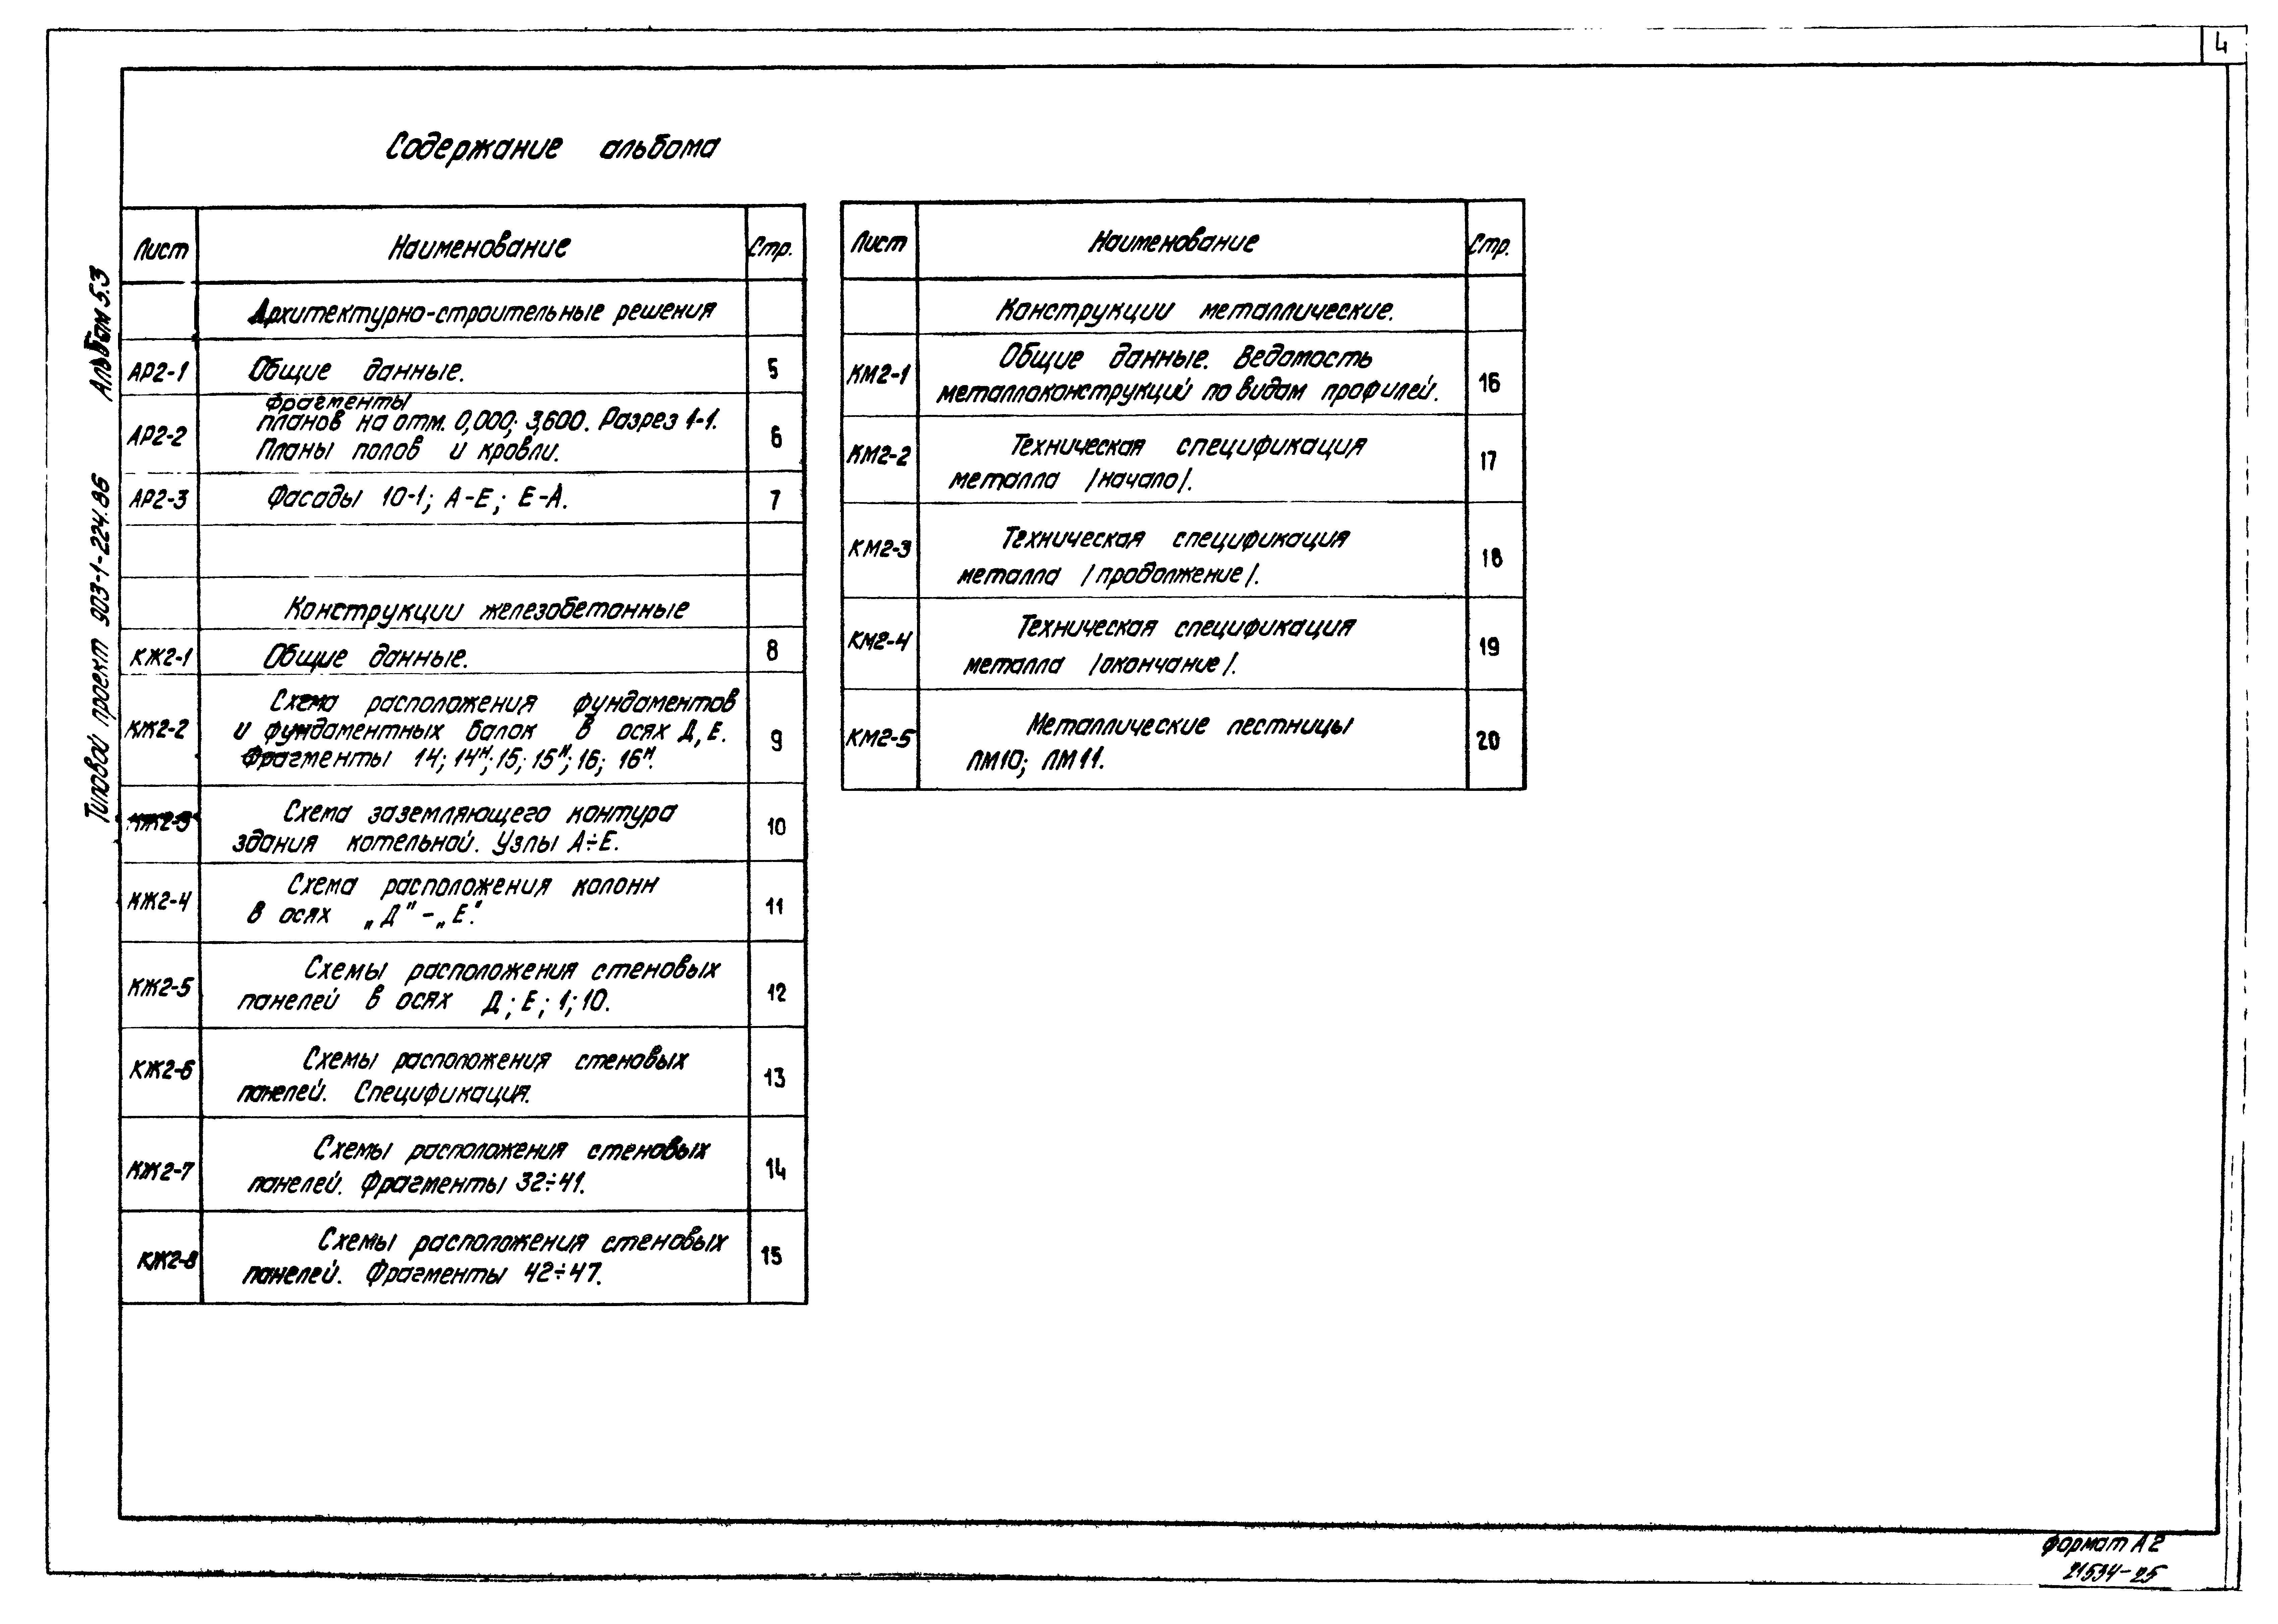 4
Содержание альбома
Альбом 5.3
Типовой проект 903-1-224.86
Лист Наименование Стр.
Архитектурно-строительные решения
АР2-1 Общие данные. 5
Фрагменты
планов на отм. 0,000; 3,600. Разрез 1-1.
АР2-2 6
Планы полов и кровли.
АР2-3 Фасады 10-1; А-Е; Е-А. 7
Конструкции железобетонные
КЖ2-1 Общие данные. 8
Схема расположения фундаментов
КЖ2-2 и фундаментных балок в осях Д, Е. 9
Фрагменты 14; 14н; 15; 15н; 16; 16н.
Схема заземляющего контура
КЖ2-3 10
здания котельной. Узлы А÷Е.
Схема расположения колонн
КЖ2-4 11
в осях „Д"-„Е".
Схемы расположения стеновых
КЖ2-5 12
панелей в осях Д; Е; 1; 10.
Схемы расположения стеновых
КЖ2-6 13
панелей. Спецификация.
Схемы расположения стеновых
КЖ2-7 14
панелей. Фрагменты 32÷41.
Схемы расположения стеновых
КЖ2-8 15
панелей. Фрагменты 42÷47.
Лист Наименование Стр.
Конструкции металлические.
Общие данные. Ведомость
КМ2-1 16
металлоконструкций по видам профилей.
Техническая спецификация
КМ2-2 17
металла /начало/.
Техническая спецификация
КМ2-3 18
металла /продолжение/.
Техническая спецификация
КМ2-4 19
металла /окончание/.
Металлические лестницы
КМ2-5 20
ЛМ10; ЛМ11.
формат А2
21534-25